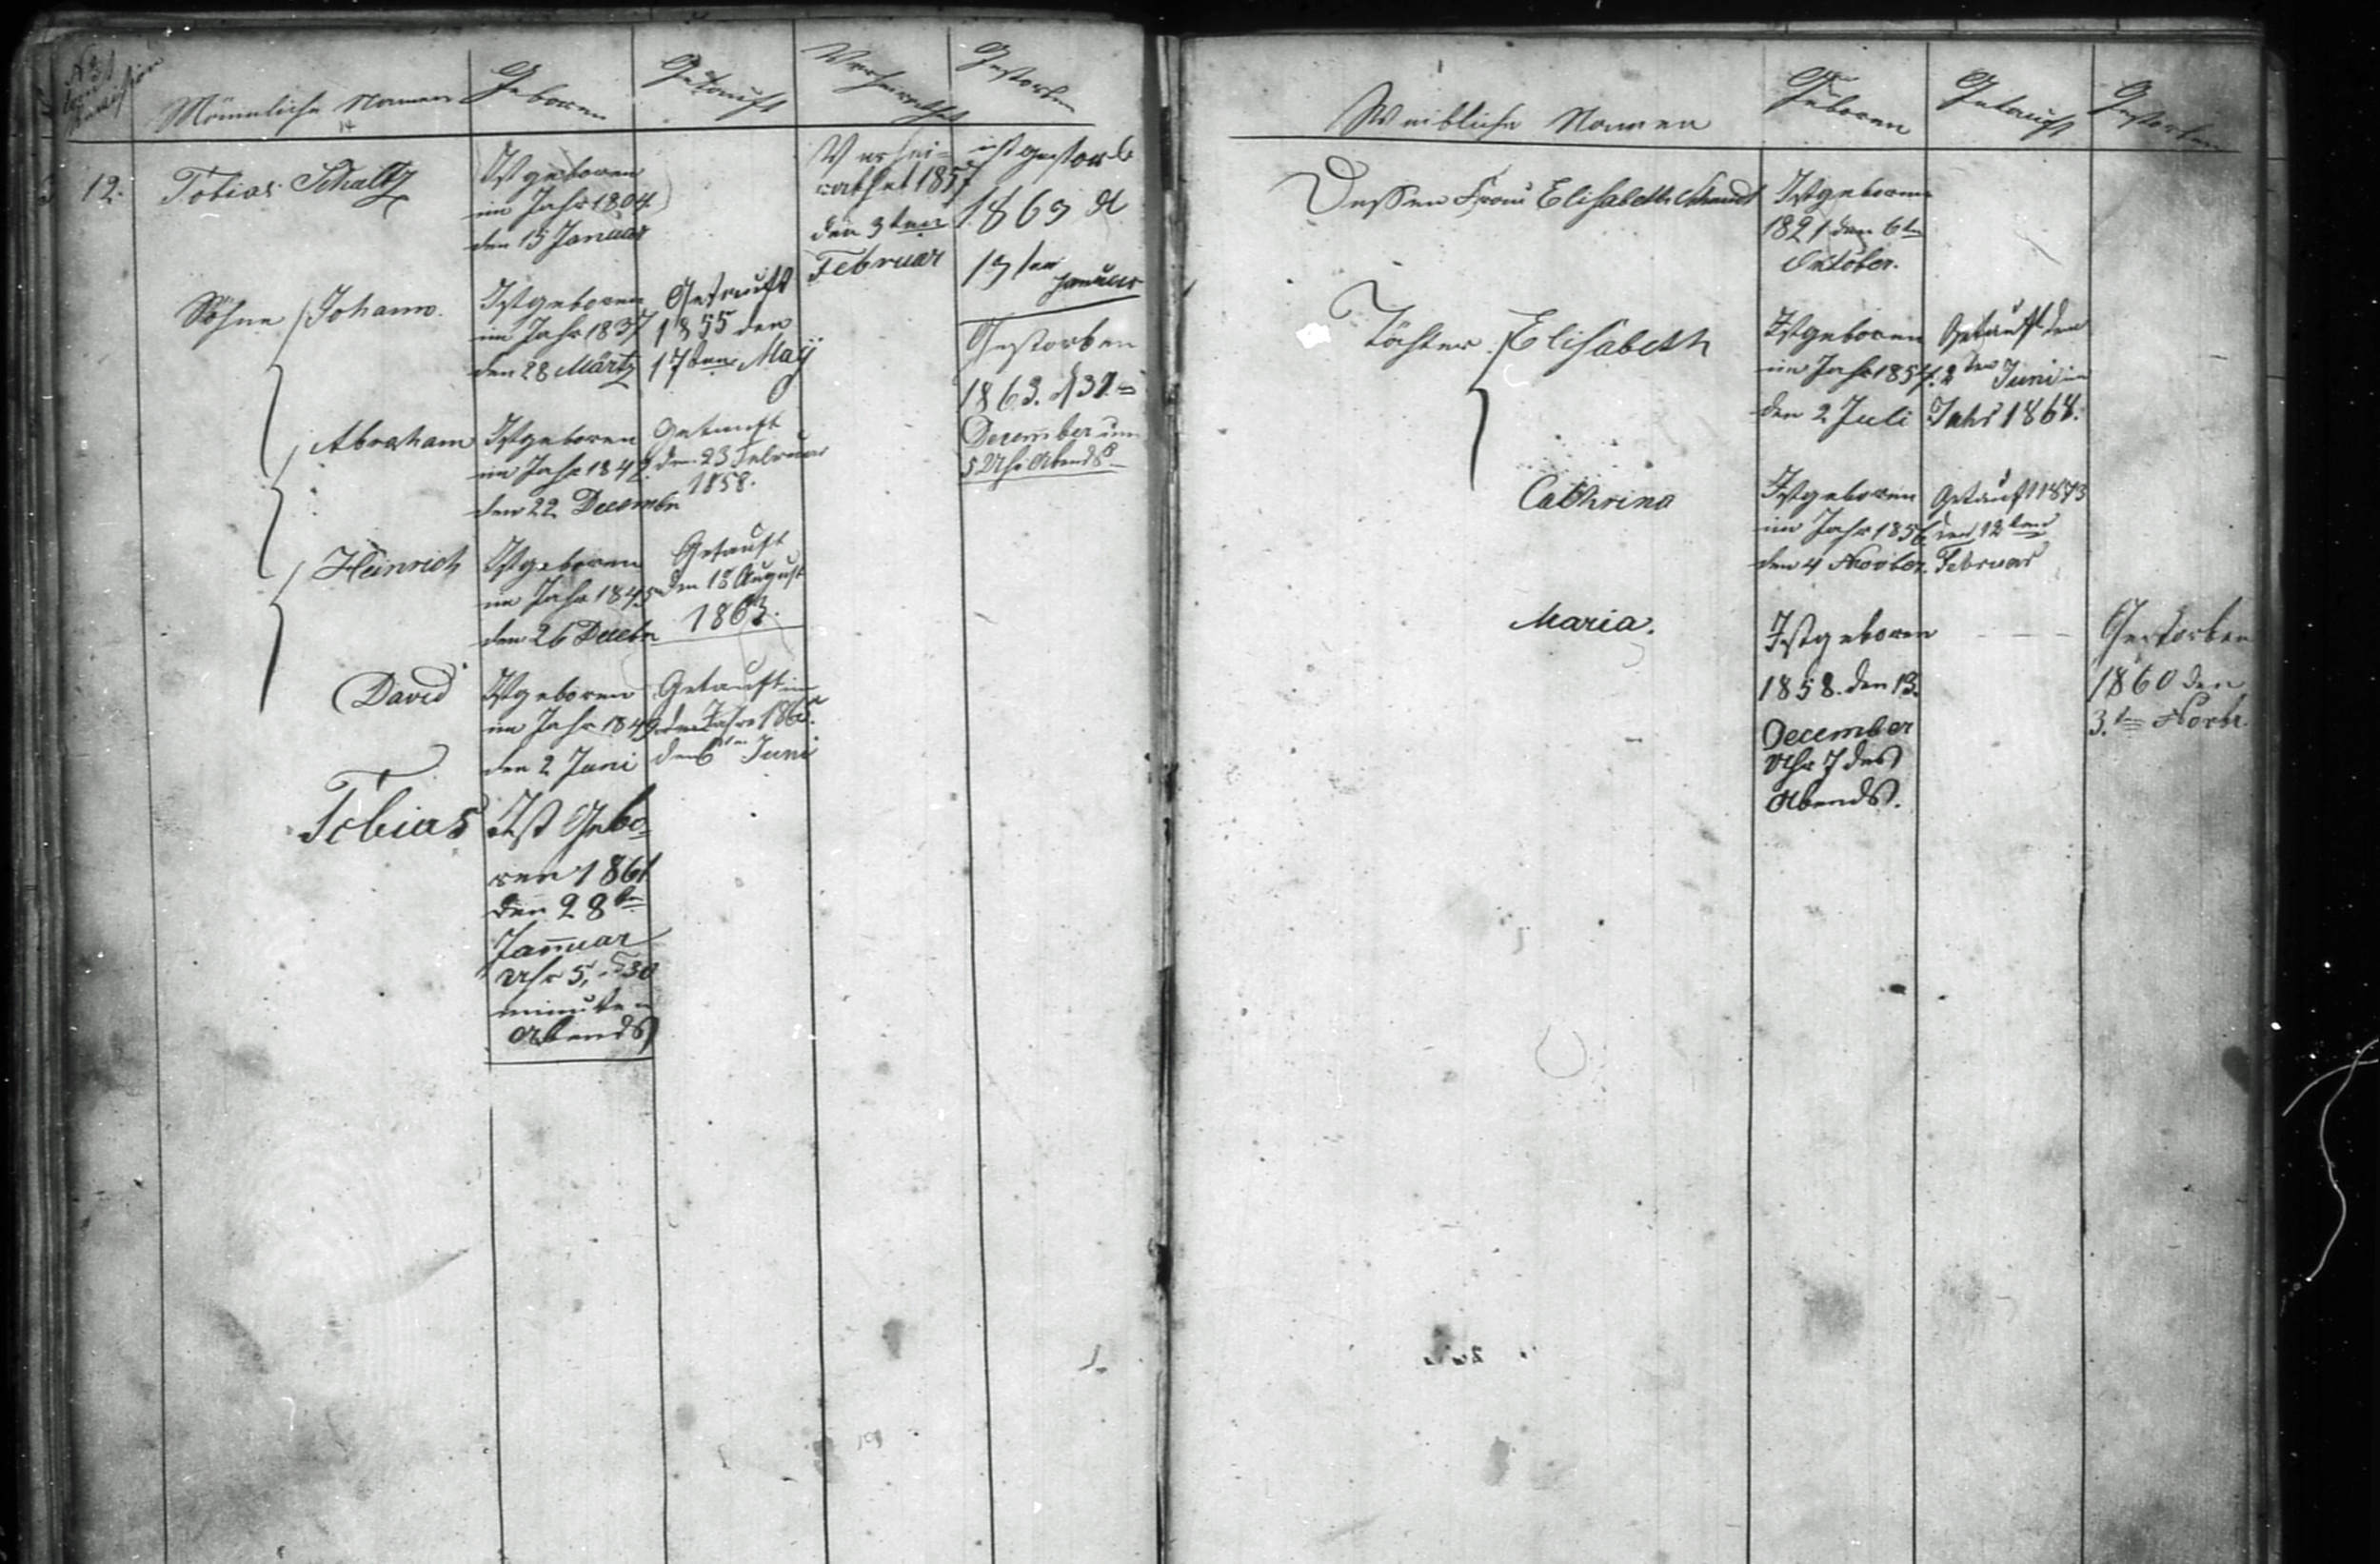 Männliche Namen
Geboren
Getauft
Verheirathet
Gestorben
12.
Tobias Schultz
Ist geboren
im Jahr 1804
den 15 Januar
Verhei-
rathet 1857
den 3ten
Februar
ist gestorb
1869 d
19ten
Januar
Söhne Johann.
Ist geboren
im Jahr 1837
den 28 Märtz
Getauft
1855 den
17ten May
Gestorben
1863. d 31
December um
5 Uhr Abends
Abraham
Ist geboren
im Jahr 1842
den 22 Decembr
Getauft
den 23 Februar
1858.
Heinrich
Ist geboren
im Jahr 1845
den 26 Decebr
Getauft
den 18 August
1863.
David
Ist geboren
im Jahr 1849
den 2 Juni
Getauft im
Jahre 186
den 6ten Juni
Tobias
Ist Gebo-
ren 1861
den 28ten
Januar
Uhr 5, 30
minuten
Abends
Weibliche Namen
Geboren
Getauft
Gestorben
Dessen Frau Elisabeth Schmidt
Ist geboren
1821 den 6ten
Oktober.
Töchter Elisabeth
Ist geboren
im Jahr 1854
den 2 Juli
Getauft den
2ten Juni im
Jahr 1868.
Cathrina
Ist geboren
im Jahr 1856
den 4 Novber.
Getauft 1873
den 12ten
Februar
Maria.
Ist geboren
1858. den 13.
December
Uhr 7 des
Abends.
Gestorben
1860 den
3.ten Novbr.